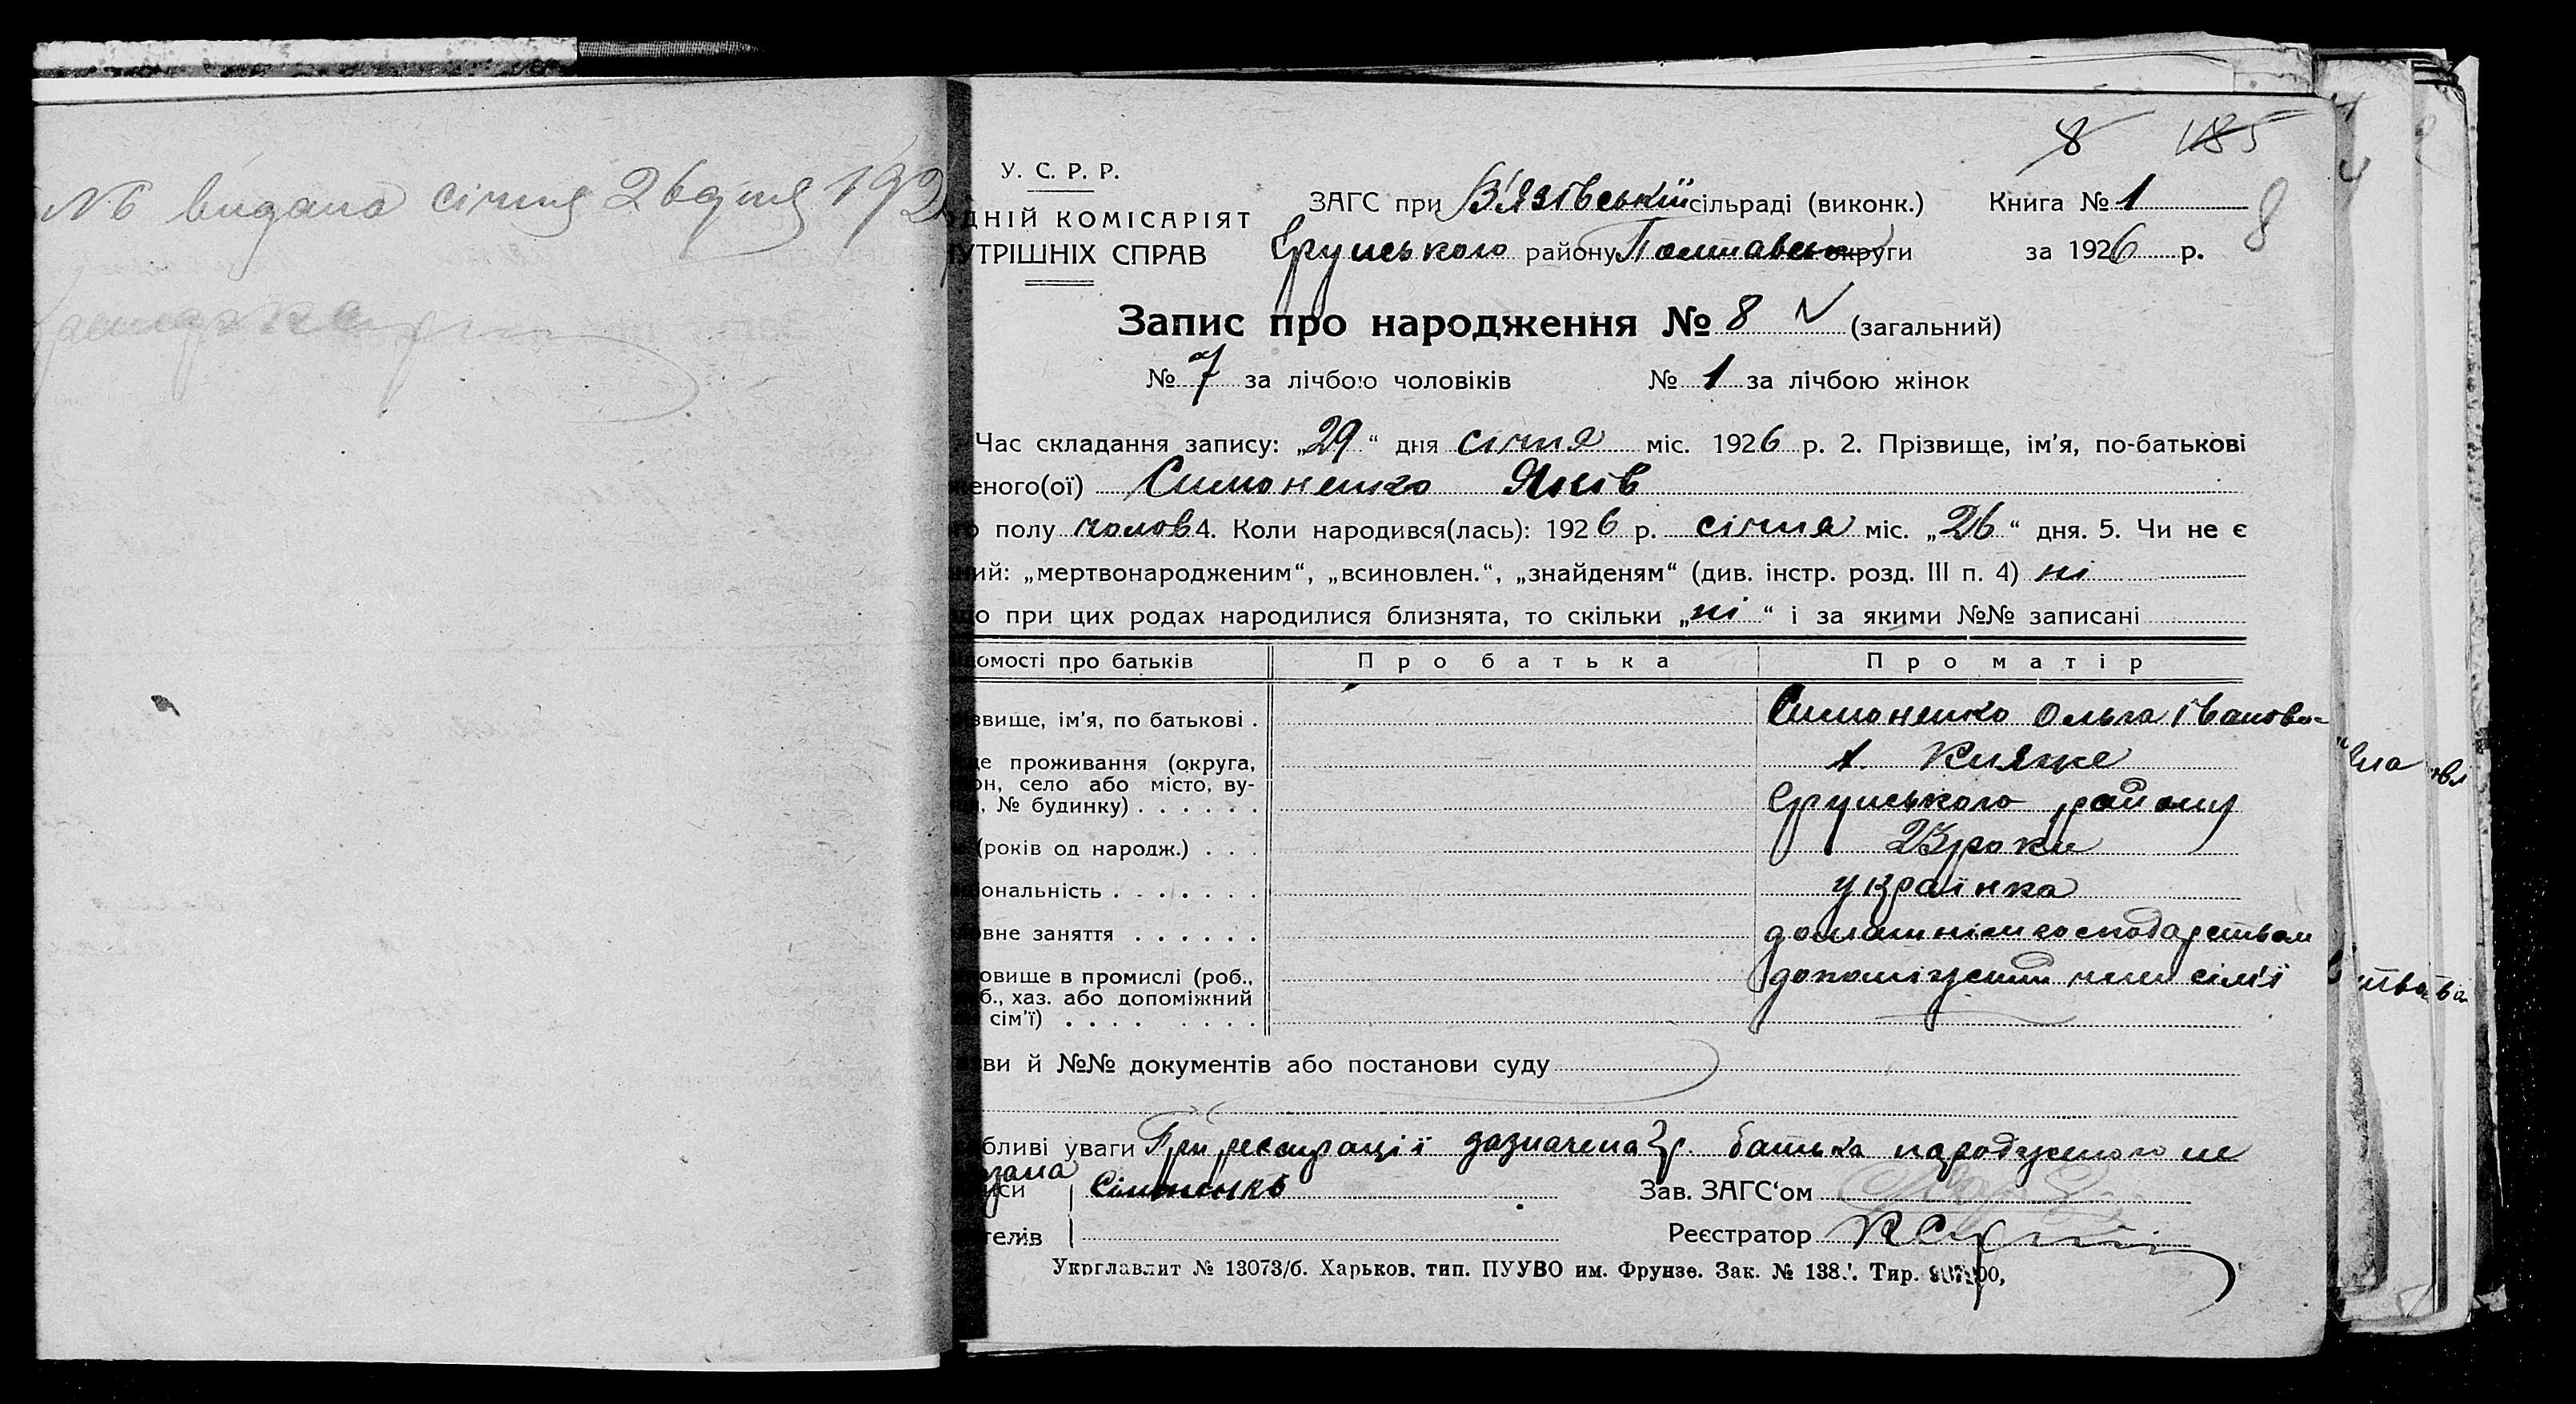 № 6 видана січня 26 дня 192
8 185
У. С. Р. Р.
ДНІЙ КОМІСАРІЯТ
УТРІШНІХ СПРАВ
ЗАГС при В'язівській сільраді (виконк.)
Книга № 1
8
Єрунського району Полтавськ округи
за 1926 р.
Запис про народження № 8 (загальний)
№ 7 за лічбою чоловіків № 1 за лічбою жінок
Час складання запису: „29“ дня січня міс. 1926 р. 2. Прізвище, ім’я, по-батькові
еного(ої) Симоненко Яків
о полу чолов 4. Коли народився(лась): 1926 р. січня міс. „26“ дня. 5. Чи не є
ий: „мертвонародженим“, „всиновлен.“, „знайденям“ (див. інстр. розд. III п. 4) ні
о при цих родах народилися близнята, то скільки „ні“ і за якими №№ записані
домості про батьків
Про батька
Про матір
звище, ім’я, по батькові . Симоненко Ольга Іванова-
е проживання (округа, х. Княже
он, село або місто, ву-
, № будинку) . . . . . . Єрунського району
(років од народж.) . . . 23 роки
ональність . . . . . . . українка
овне заняття . . . . . . домашнім господарством
овище в промислі (роб., допомігаючий член сім'ї
б., хаз. або допоміжний
сім’ї) . . . . . . . .
ви й №№ документів або постанови суду
бливі уваги При реєстрації зазначена гр. батька народженого не
зала
иси Сімоненко
Зав. ЗАГС‘ом
телів
Реєстратор
Укрглавлит № 13073/б. Харьков, тип. ПУУВО им. Фрунзе. Зак. № 138 . Тир.